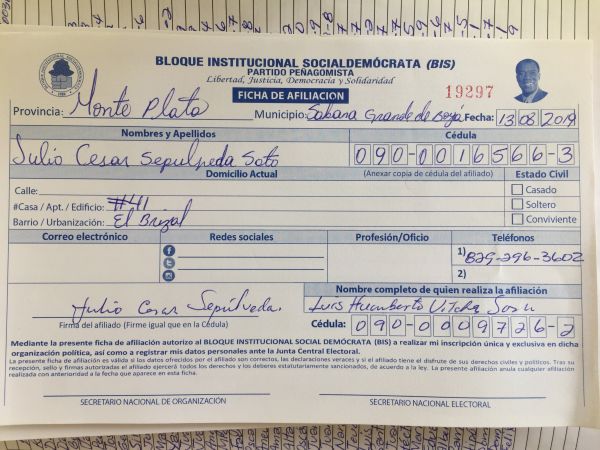 BLOQUE INSTITUCIONAL SOCIALDEMÓCRATA (BIS)
PARTIDO PEÑAGOMISTA
Libertad, Justicia, Democracia y Solidaridad
FICHA DE AFILIACION
19297
Provincia: Monte Plata Municipio: Sabana Grande de Boyá Fecha: 13/08/2019
Nombres y Apellidos Cédula
Julio Cesar Sepulpeda Soto 090-0016566-3
Domicilio Actual (Anexar copia de cédula del afiliado) Estado Civil
Calle: Casado
#Casa / Apt. / Edificio: #41 Soltero
Barrio / Urbanización: El Brizal Conviviente
Correo electrónico Redes sociales Profesión/Oficio Teléfonos
1) 829-296-3602
2)
Nombre completo de quien realiza la afiliación
Julio Cesar Sepúlveda. Luis Humberto
Firma del afiliado (Firme igual que en la Cédula) Cédula: 090-0009726-2
Mediante la presente ficha de afiliación autorizo al BLOQUE INSTITUCIONAL SOCIAL DEMÓCRATA (BIS) a realizar mi inscripción única y exclusiva en dicha
organización política, así como a registrar mis datos personales ante la Junta Central Electoral.
La presente ficha de afiliación es válida si los datos ofrecidos por el afiliado son correctos, las declaraciones veraces y si el afiliado tiene el disfrute de sus derechos civiles y políticos. Tras su
recepción, sello y firmas autorizadas el afiliado ejercerá todos los derechos y los deberes estatutariamente sancionados, de acuerdo a la ley. La presente afiliación anula cualquier afiliación
realizada con anterioridad a la fecha que aparece en esta ficha.
SECRETARIO NACIONAL DE ORGANIZACIÓN SECRETARIO NACIONAL ELECTORAL